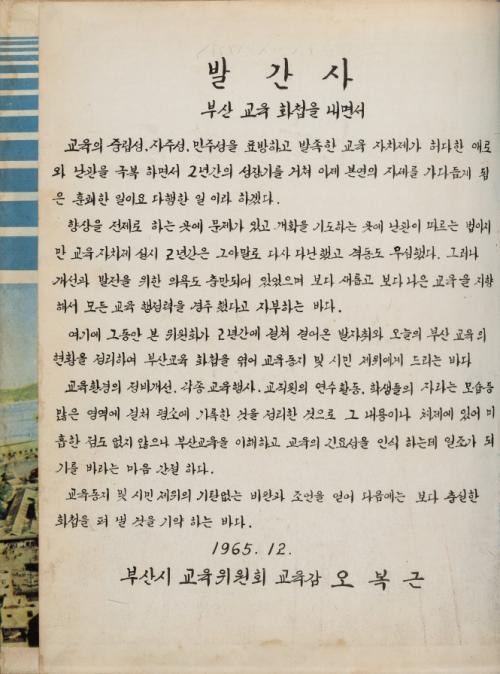 발 간 사
부산 교육 화첩을 내면서
교육의 중립성.자주성.민주성을 표방하고 발족한 교육 자치제가 허다한 애로
와 난관을 극복 하면서 2년간의 성장기를 거쳐 이제 본연의 자세를 가다듬게 됨
은 흔쾌한 일이요 다행한 일 이라 하겠다.
향상을 전제로 하는 곳에 문제가 있고 개화를 기도하는 곳에 난관이 따르는 법이지
만 교육자치제 실시 2년간은 그야말로 다사 다난했고 격동도 무심했다. 그러나
개선과 발전을 위한 의욕도 충만되어 있었으며 보다 새롭고 보다 나은 교육을 지향
해서 모든 교육 행정력을 경주 했다고 자부하는 바다.
여기에 그동안 본 위원회가 2년간에 걸쳐 걸어온 발자취와 오늘의 부산 교육의
현황을 정리하여 부산교육 화첩을 엮어 교육동지 및 시민 제위에게 드리는 바다
교육환경의 정비개선. 각종 교육행사. 교직원의 연수활동. 학생들의 자라는 모습등
많은 영역에 걸쳐 평소에 기록한 것을 정리한 것으로 그 내용이나 체제에 있어 미
흡한 점도 없지 않으나 부산교육을 이해하고 교육의 긴요성을 인식 하는데 일조가 되
기를 바라는 마음 간절 하다.
교육동지 및 시민 제위의 기탄없는 비판과 조언을 얻어 다음에는 보다 충실한
화첩을 펴 낼 것을 기약 하는 바다.
1965. 12.
부산시 교육위원회 교육감 오 복 근